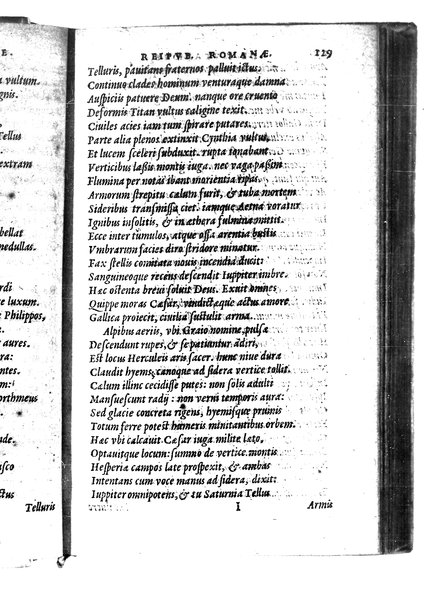 E.
vultum.
gnis.
Tellus
extram
bellat
medullas.
re luxum.
Philippos,
r aures.
entes.
orthmeus
asco
ctus
Telluris
REIPVB. ROMANÆ. 129
Telluris, pauitans fraternos palluit ictus.
Continuo clades hominum venturaque damna
Auspiciis patuere Deum. nanque ore cruento
Deformis Titan vultus caligine texit.
Ciuiles acies iam tum spirare putares.
Parte alia plenos extinxit Cynthia vultus,
Et lucem sceleri subduxit. rupta tonabant
Verticibus lapsis montis iuga. nec vaga passim
Flumina per notas ibant morientia ripas.
Armorum strepitu cælum furit, & tuba mortem
Sideribus transmissa ciet. iamque Aetna voratur
Ignibus insolitis, & in æthera fulmina mittit.
Ecce inter tumulos, atque ossa arentia bustis
Vmbrarum facies diro stridore minatur.
Fax stellis comitata nouis incendia ducit:
Sanguineoque recens descendit Iuppiter imbre.
Hæc ostenta breui soluit Deus. Exuit omnes
Quippe moras Cæsar, vindictæque actus amore
Gallica proiecit, ciuilia sustulit arma.
Alpibus aeriis, vbi Graio nomine pulsæ
Descendunt rupes, & se patiuntur adiri,
Est locus Herculeis aris sacer. hunc niue dura
Claudit hyems, canoque ad sidera vertice tollit.
Cælum illinc cecidisse putes: non solis adulti
Mansuescunt radij: non verni temporis auræ:
Sed glacie concreta rigens, hyemisque pruinis
Totum ferre potest humeris minitantibus orbem.
Hæc vbi calcauit Cæsar iuga milite læto,
Optauitque locum: summo de vertice montis
Hesperiæ campos late prospexit, & ambas
Intentans cum voce manus ad sidera, dixit:
Iuppiter omnipotens, & tu Saturnia Tellus
I Armis